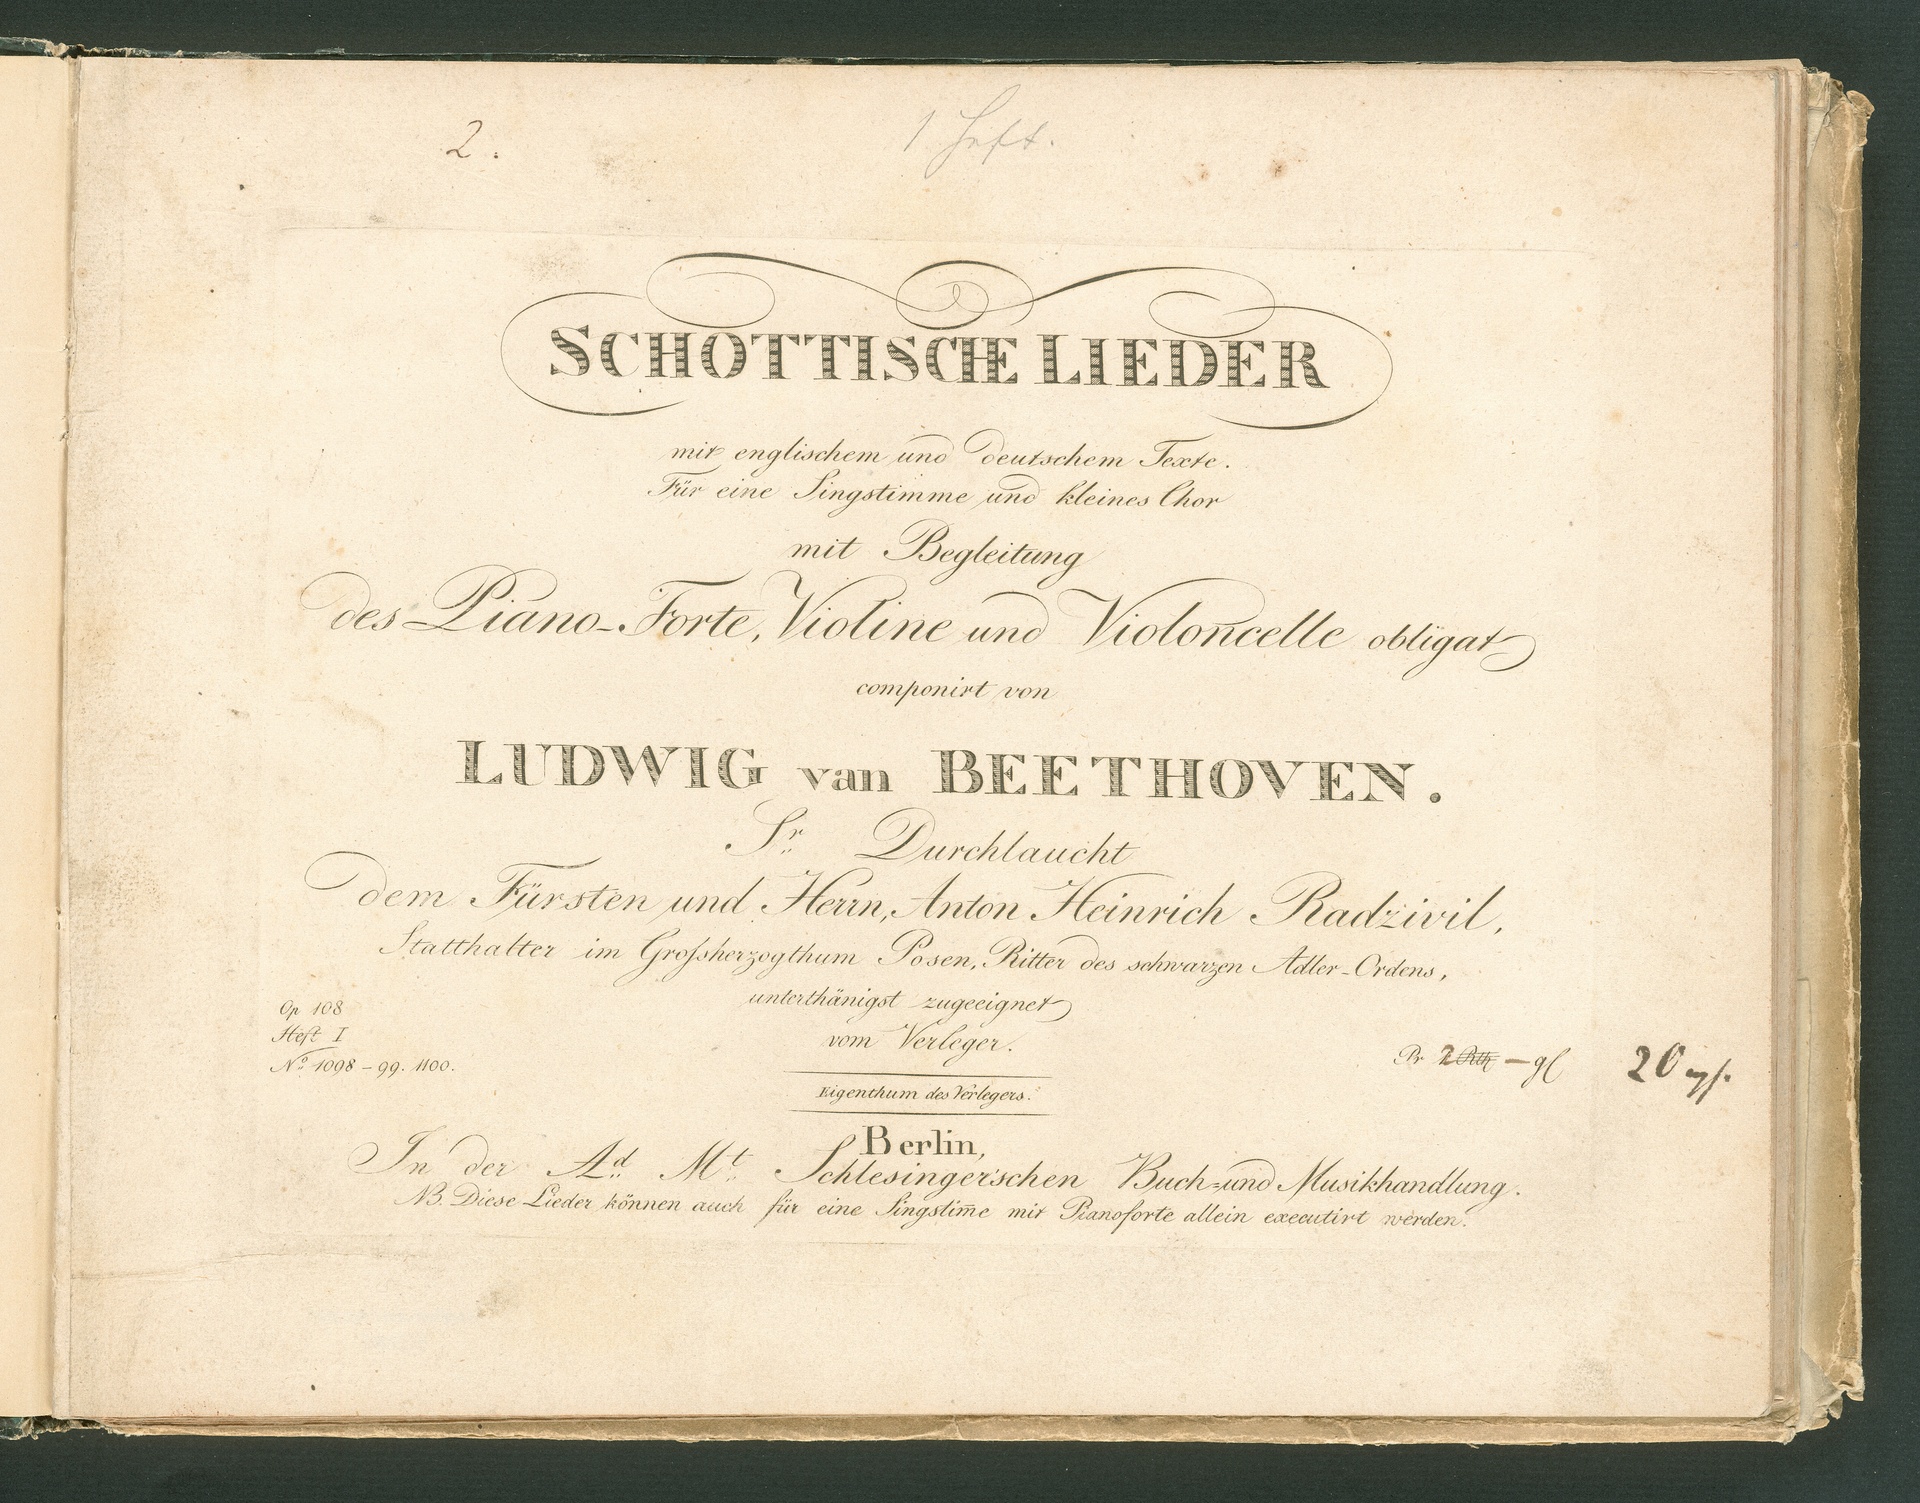 2.
1 Heft.
SCHOTTISCHE LIEDER
mit englischem und deutschem Texte.
Für eine Singstimme und kleines Chor
mit Begleitung
des Piano-Forte, Violine und Violoncelle obligat
componirt von
LUDWIG van BEETHOVEN.
Sr. Durchlaucht
dem Fürsten und Herrn, Anton Heinrich Radzivil,
Statthalter im Grossherzogthum Posen, Ritter des schwarzen Adler-Ordens,
unterthänigst zugeeignet
vom Verleger.
Op 108
Heft I
No 1098 - 99. 1100.
Pr. 2 Rth – gl 20
Eigenthum des Verlegers.
Berlin,
In der Ad. Mt. Schlesinger'schen Buch- und Musikhandlung.
NB. Diese Lieder können auch für eine Singstim̅e mit Pianoforte allein executirt werden.